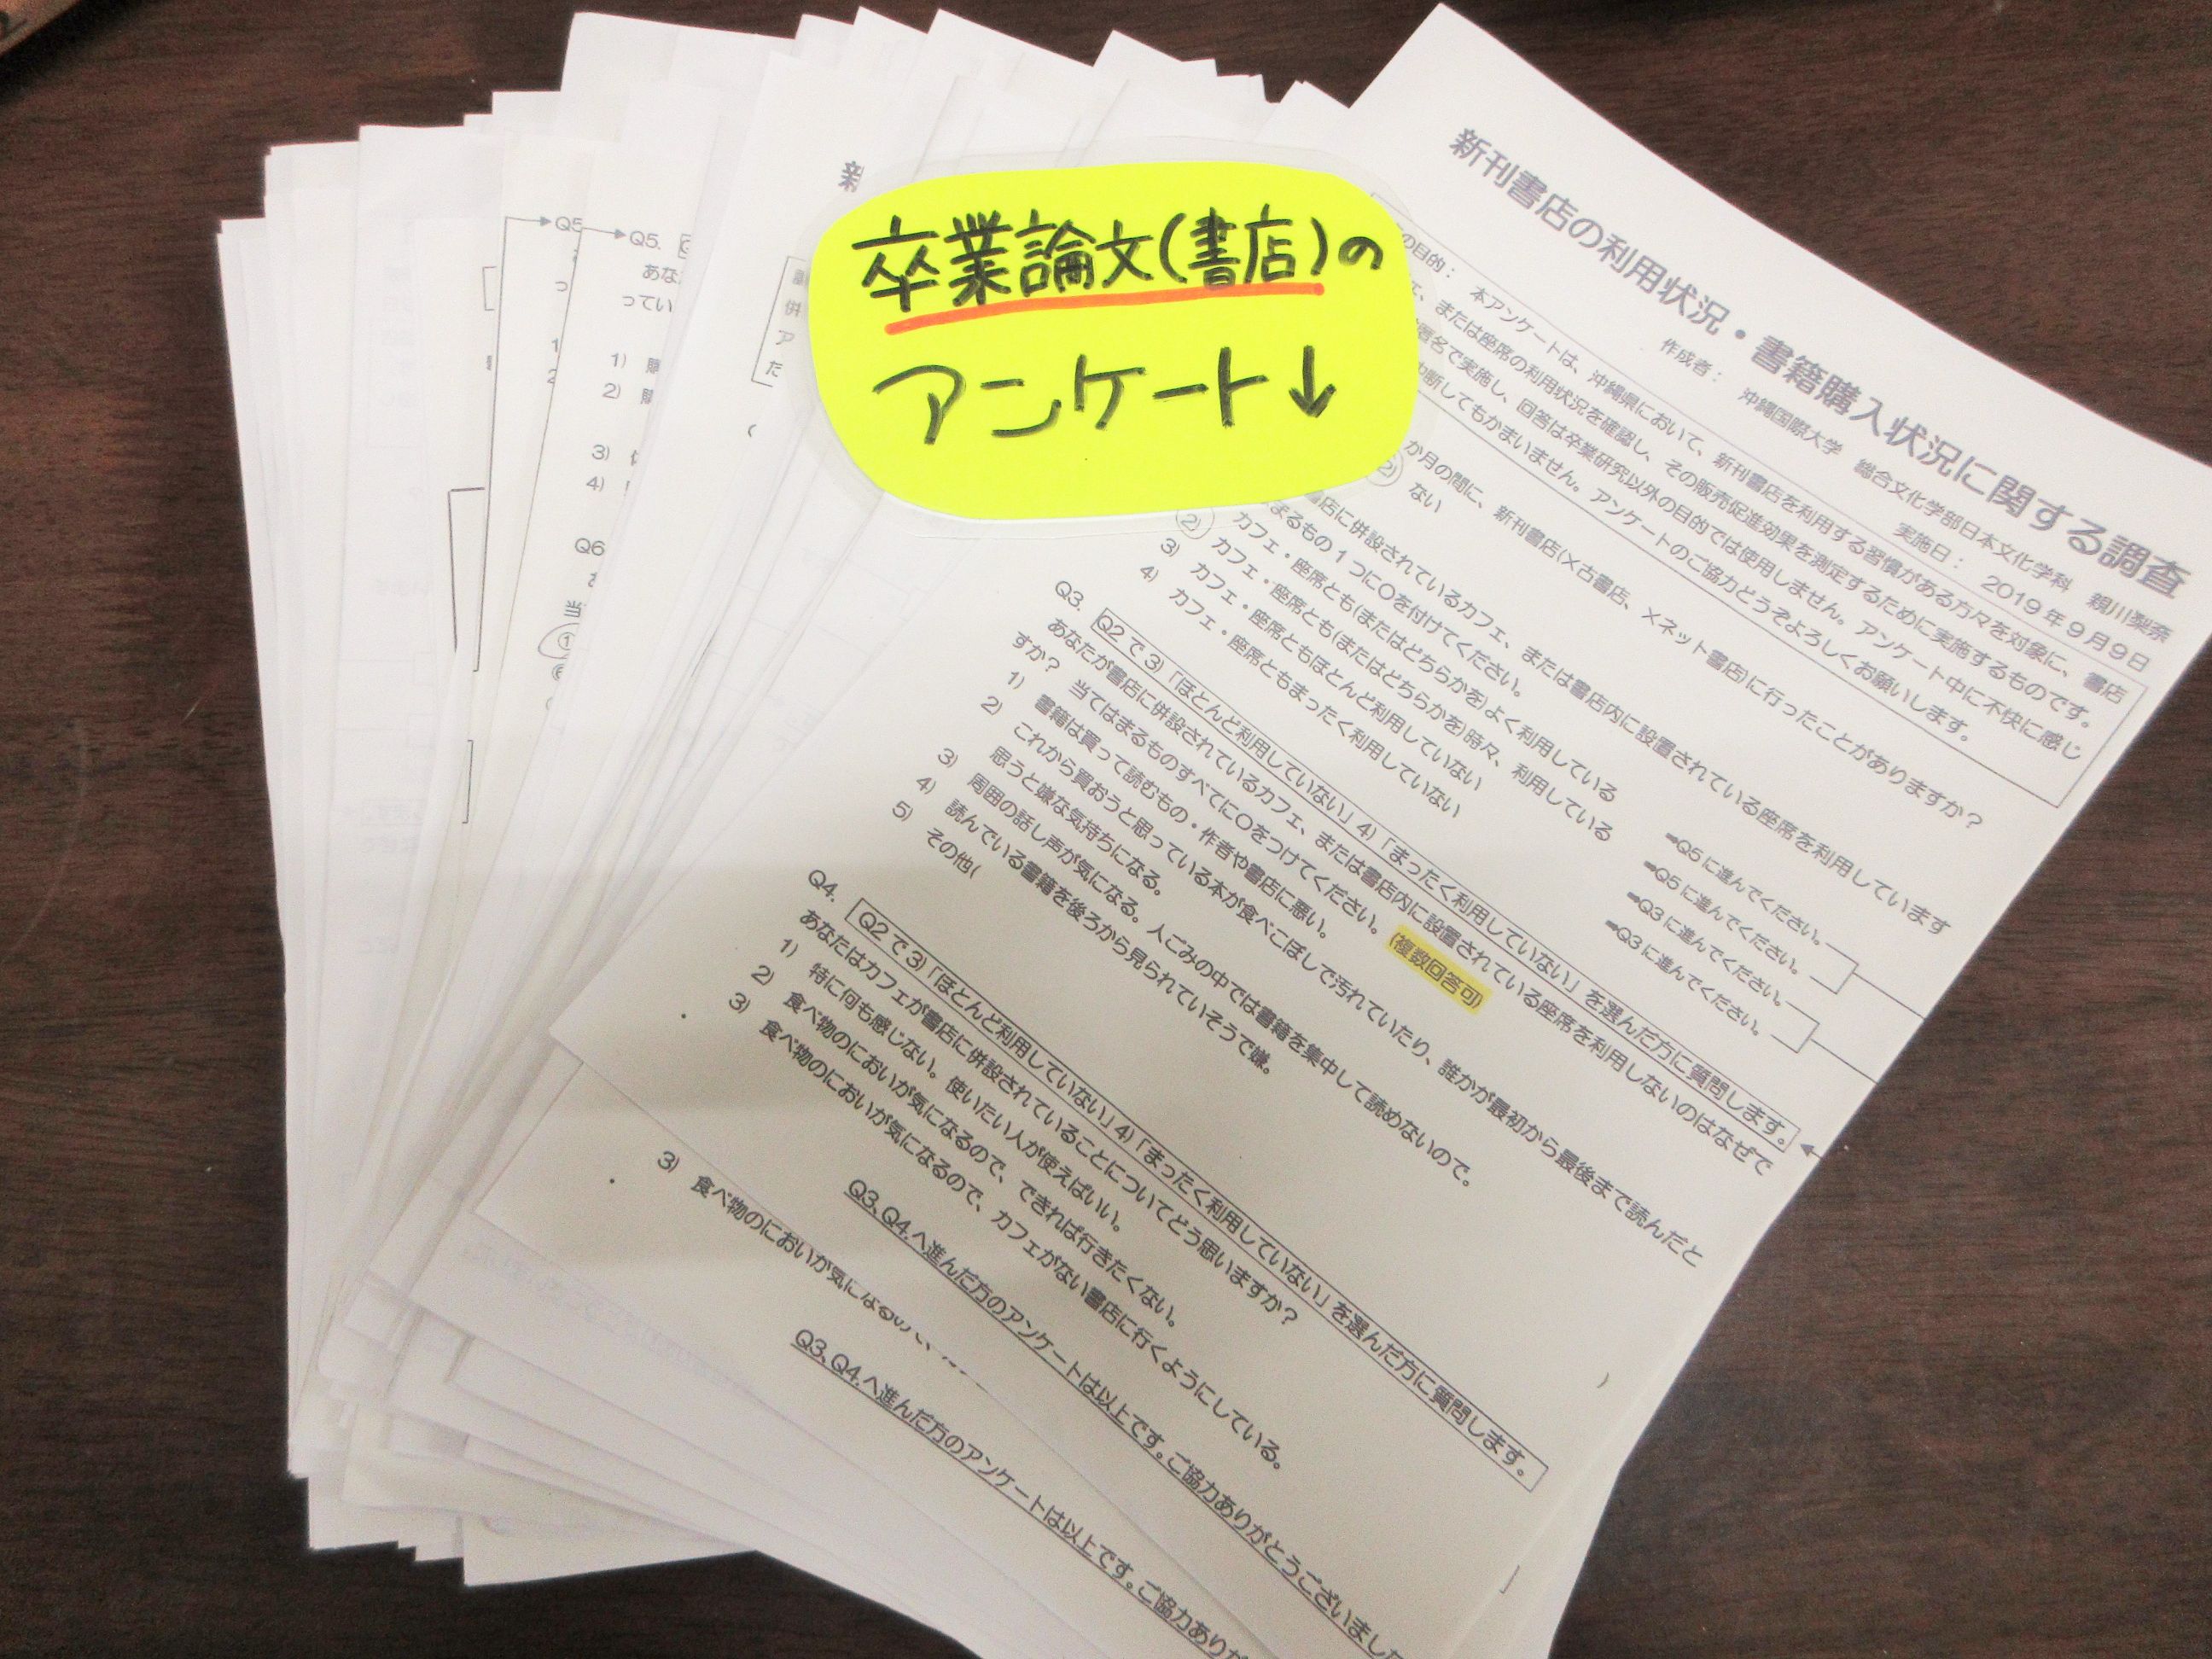 卒業論文(書店)の
アンケート↓
新刊書店の利用状況・書籍購入状況に関する調査
作成者： 沖縄国際大学 総合文化学部日本文化学科 親川梨奈
実施日： 2019年9月9日
の目的： 本アンケートは、沖縄県において、新刊書店を利用する習慣がある方々を対象に、書店
、または座席の利用状況を確認し、その販売促進効果を測定するために実施するものです。
匿名で実施し、回答は卒業研究以外の目的では使用しません。アンケート中に不快に感じ
中断してもかまいません。アンケートのご協力どうぞよろしくお願いします。
か月の間に、新刊書店(×古書店、×ネット書店)に行ったことがありますか？
2) ない
書店に併設されているカフェ、または書店内に設置されている座席を利用しています
まるもの1つに○を付けてください。
カフェ・座席とも(またはどちらかを)よく利用している ➡Q5に進んでください。
2) カフェ・座席とも(またはどちらかを)時々、利用している ➡Q5に進んでください。
3) カフェ・座席ともほとんど利用していない ➡Q3に進んでください。
4) カフェ・座席ともまったく利用していない ➡Q3に進んでください。
Q3. Q2で3)「ほとんど利用していない」4)「まったく利用していない」を選んだ方に質問します。
あなたが書店に併設されているカフェ、または書店内に設置されている座席を利用しないのはなぜで
すか？ 当てはまるものすべてに○をつけてください。(複数回答可)
1) 書籍は買って読むもの・作者や書店に悪い。
2) これから買おうと思っている本が食べこぼしで汚れていたり、誰かが最初から最後まで読んだと
思うと嫌な気持ちになる。
3) 周囲の話し声が気になる。人ごみの中では書籍を集中して読めないので。
4) 読んでいる書籍を後ろから見られていそうで嫌。
5) その他( )
Q4. Q2で3)「ほとんど利用していない」4)「まったく利用していない」を選んだ方に質問します。
あなたはカフェが書店に併設されていることについてどう思いますか？
1) 特に何も感じない。使いたい人が使えばいい。
2) 食べ物のにおいが気になるので、できれば行きたくない。
3) 食べ物のにおいが気になるので、カフェがない書店に行くようにしている。
Q3、Q4.へ進んだ方のアンケートは以上です。ご協力ありがとうございました
3) 食べ物のにおいが気になるの
Q3、Q4.へ進んだ方のアンケートは以上です。ご協力あり
新
Q5
Q5.
あな
ってい
1)
2)
3)
4)
Q6